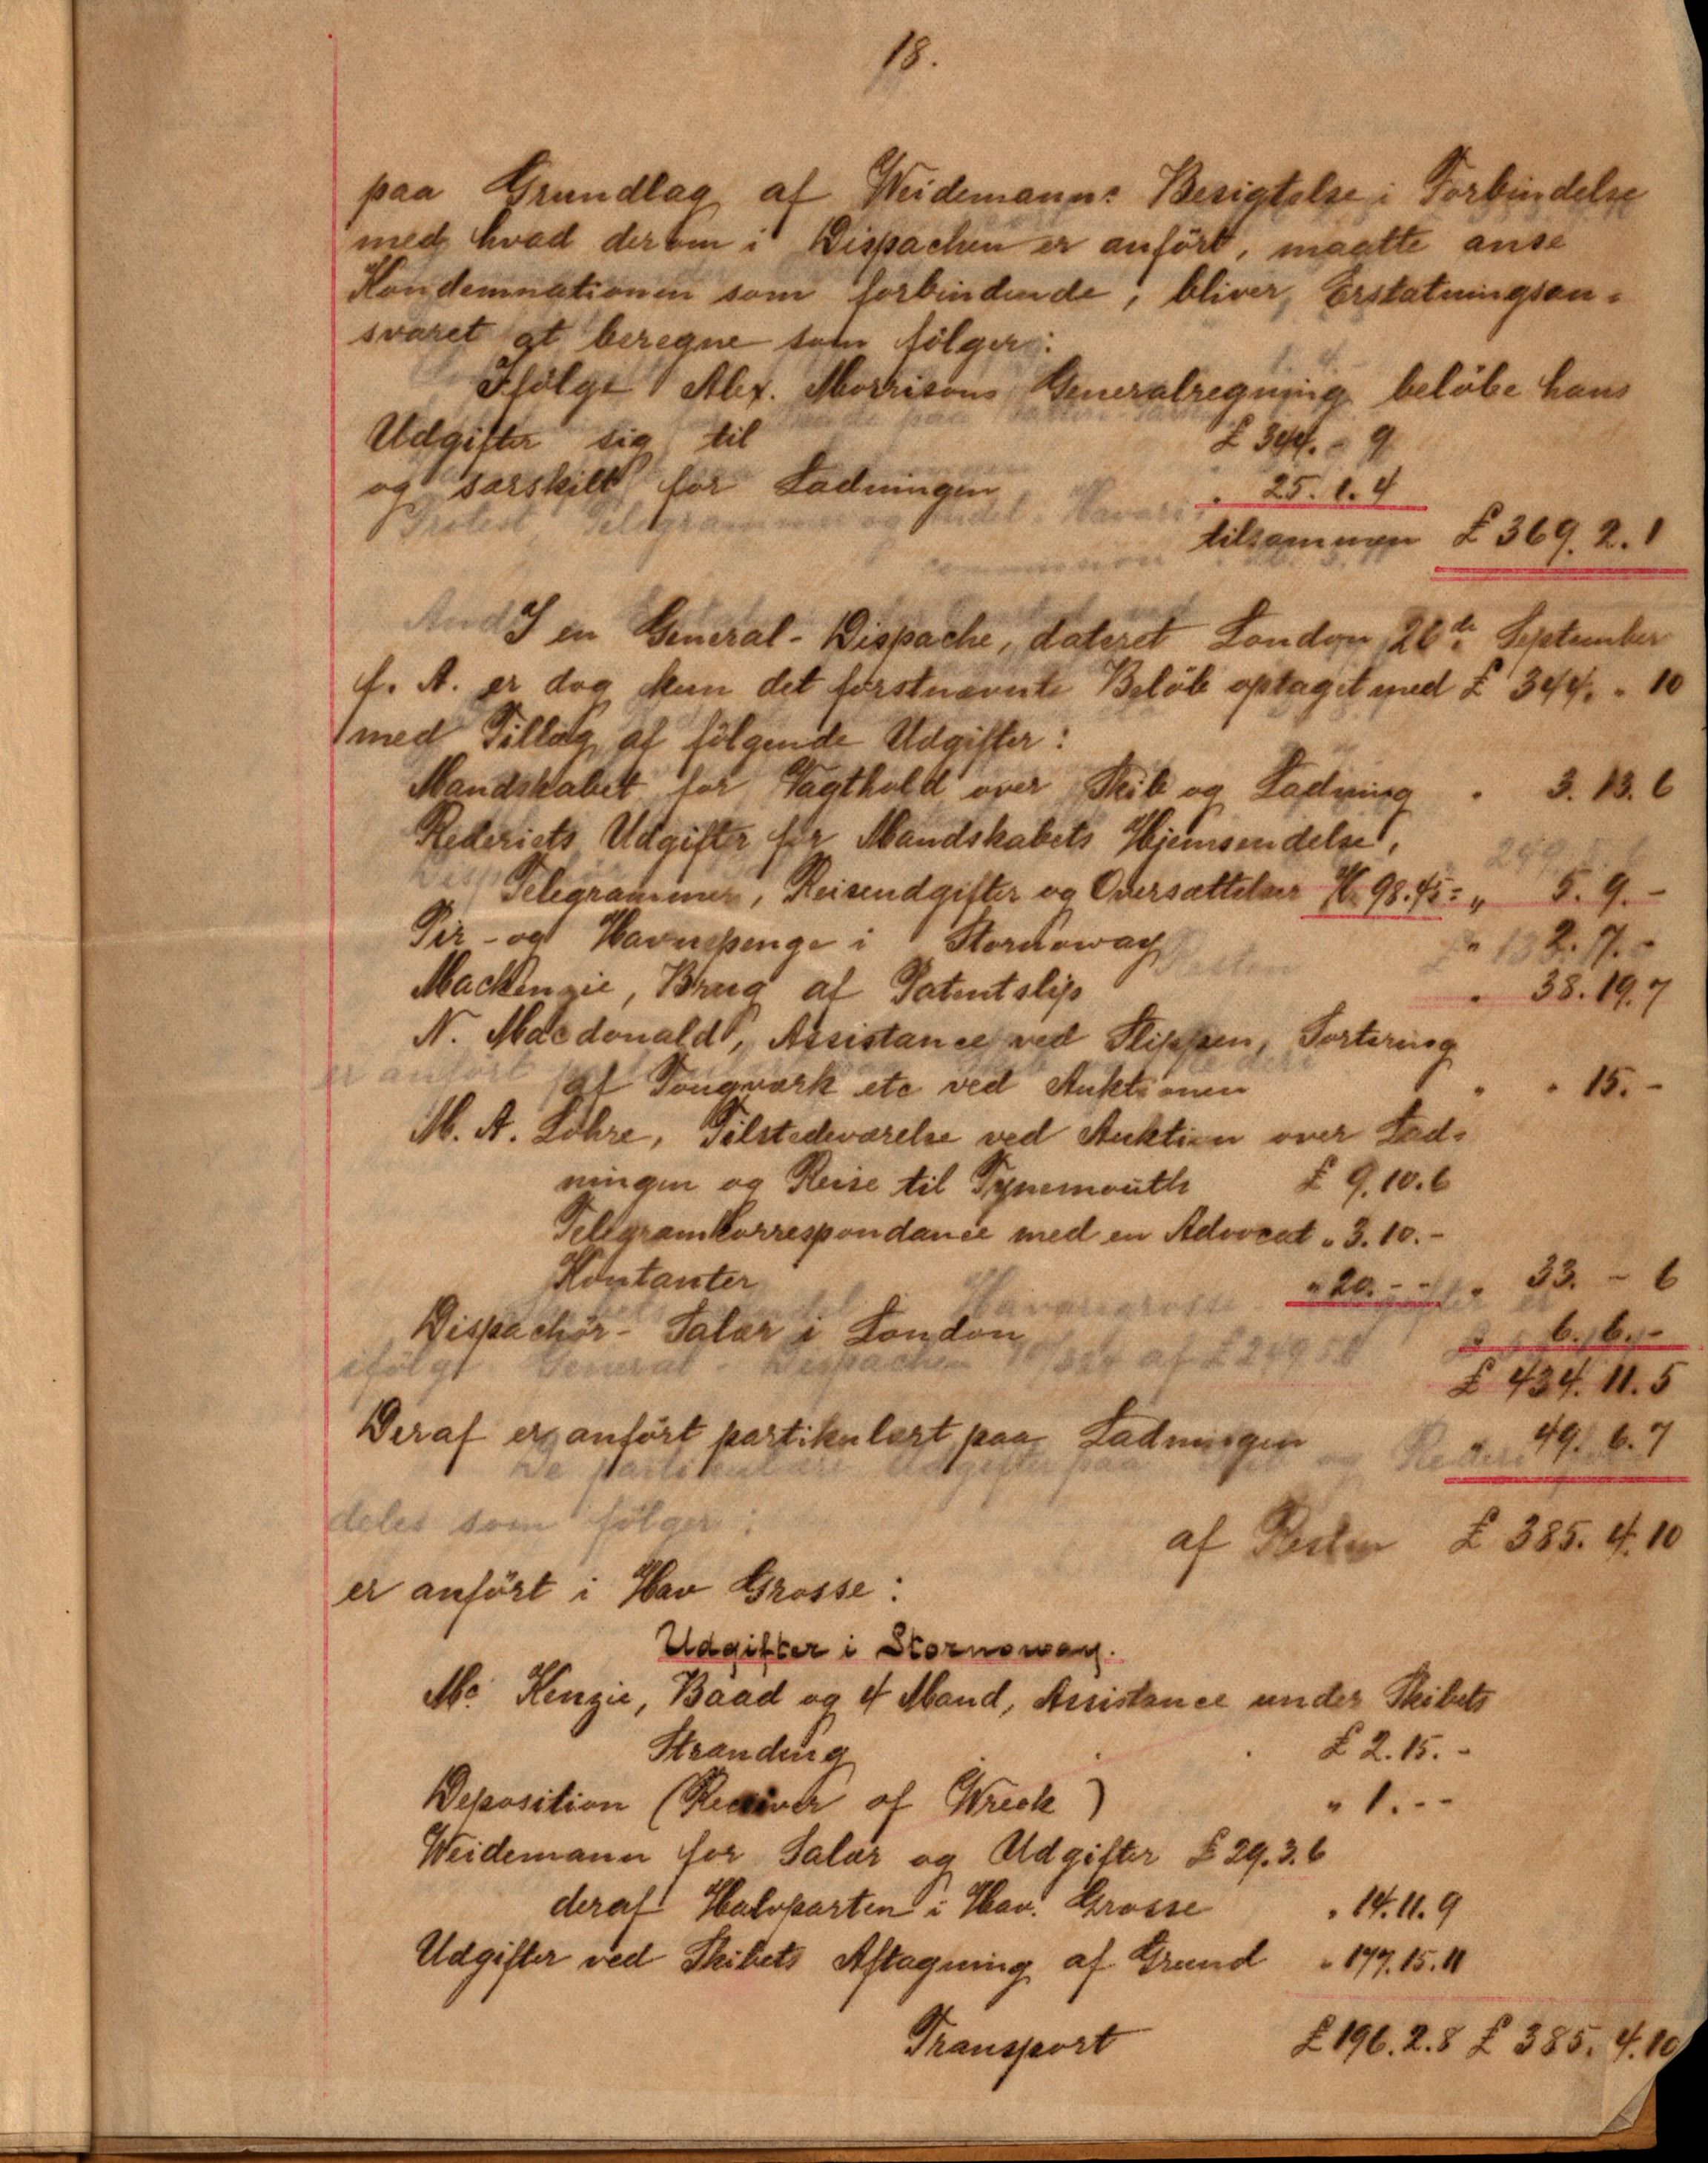 18.
paa Grundlag af Weidemanns Besigtelse i Forbindelse
med hvad derom i Dispachen er anført, maatte anse
Kondemnationen som forbindende, bliver Erstatningsan-
svaret at beregne som følger:
Ifølge Alex. Morrisons Generalregning beløbe hans
Udgifter sig til £ 344. - 9
og særskilt for Ladningen " 25. 1. 4
tilsammen £ 369. 2. 1
I en General-Dispache, dateret London 26de September
f. A. er dog kun det førstnævnte Beløb optaget med £ 344. " 10
med Tillæg af følgende Udgifter:
Mandskabet for Vagthold over Skib og Ladning " 3. 13. 6
Rederiets Udgifter for Mandskabets Hjemsendelse,
Telegrammer, Reiseudgifter og Oversættelser Kr 98.45 = " 5. 9. -
Pir- og Havnepenge i Stornoway " 2. 7. -
Mackenzie, Brug af Patentslip " 38. 19. 7
N. Macdonald, Assistance ved Slippen, Sortering
af Tougværk etc ved Auktionen " " 15. -
M. A. Løhre, Tilstedeværelse ved Auktion over Lad-
ningen og Reise til Tynemouth £ 9. 10. 6
Telegramkorrespondance med en Advocat " 3. 10. -
Kontanter " 20. - - " 33. - 6
Dispachør-Salær i London " 6. 6. -
£ 434. 11. 5
Deraf er anført partikulært paa Ladningen " 49. 6. 7
af Resten £ 385. 4. 10
er anført i Hav Grosse:
Udgifter i Stornoway.
Mc Kenzie, Baad og 4 Mand, Assistance under Skibets
Stranding £ 2. 15. -
Deposition (Receiver of Wreck) " 1. - -
Weidemann for Salær og Udgifter £ 29. 3. 6
deraf Halvparten i Hav. Grosse " 14. 11. 9
Udgifter ved Skibets Aftagning af Grund " 177. 15. 11
Transport £ 196. 2. 8 £ 385. 4. 10